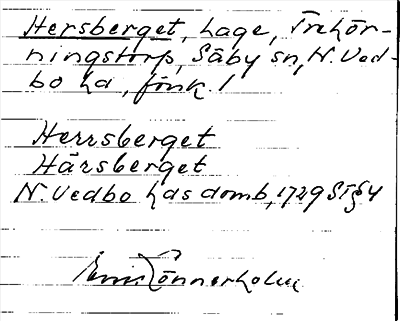 Hersberget, hage, Trehör-
ningstorp, Säby sn, N. Ved-
bo hd, Jönk. l
Herrsberget
Härsberget
N. Vedbo hds domb, 1729 St § 4
Lönnerholm